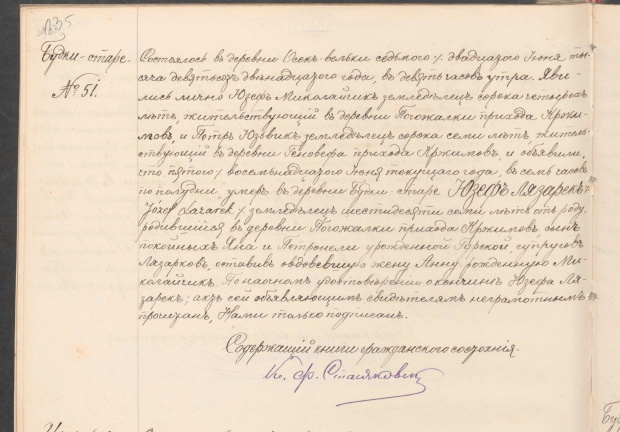 Будки-старе.
№ 51.
Состоялось въ деревни Осек-вельки седьмого / двадцатого Іюня ты-
сяча девятсотъ двѣнадцатого года, въ девять часовъ утра. Яви-
лись лично Юзефъ Миколайчикъ земледѣлецъ сорока четырехъ
лѣтъ, жительствующій въ деревни Погожалки прихода Кржи-
мовъ, и Петръ Юзвикъ земледѣлецъ сорока семи лѣтъ житель-
ствующій въ деревни Геновефа прихода Кржимовъ, и объявили,
что пятого / восемьнадцатого Іюня текущаго года, въ семь часовъ
по полудни умеръ въ деревни Будки-старе Юзефъ Лязарекъ /
Józef Łazarek / земледѣлецъ шестидесяти семи лѣтъ отъ роду,
родившійся въ деревни Погожалки прихода Кржимовъ сынъ
покойныхъ Яна и Петронели урожденной Горской, супруговъ
Лязарковъ, оставивъ овдовевшую жену Анну урожденную Ми-
колайчикъ. По наочномъ удостовѣреніи о кончинѣ Юзефа Ля-
зарек; актъ сей объявляющимъ свидѣтелямъ неграмотнымъ
прочитанъ, Нами только подписанъ.
Содержащій книги гражданского состоянія.
Кс. Ф. Сташкович